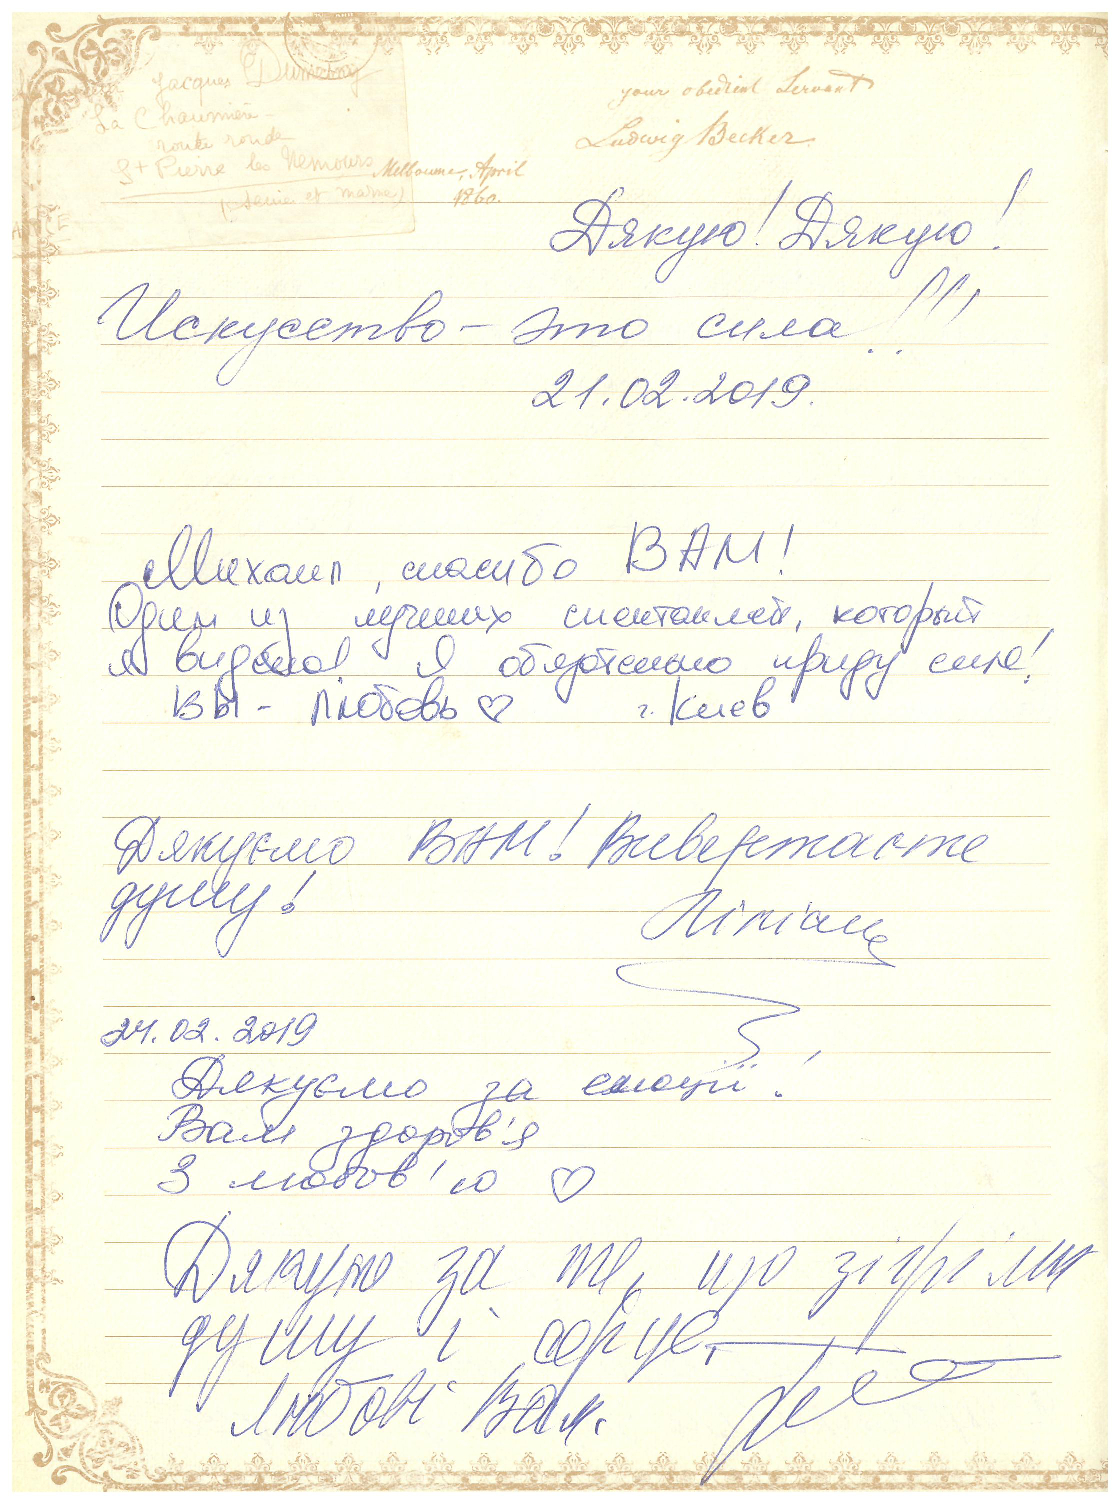 Jacques Dumesny
La Chaumière
route ronde
St Pierre les Nemours
(Seine et Marne)
your obedient Servant
Ludwig Becker
Melbourne, April
1860.
Дякую! Дякую!
Искусство - это сила!!!
21.02.2019.
Михаил, спасибо ВАМ!
Один из лучших спектаклей, который
я видела! Я обязательно приду еще!
ВЫ - любовь ♡ г. Киев
Дякуємо ВАМ! Вивертаєте
душу!
24.02.2019
Дякуємо за емоції!
Вам здоров'я
З любов'ю ♡
Дякую за те, що зігріли
душу і серце.
Любові Вам.